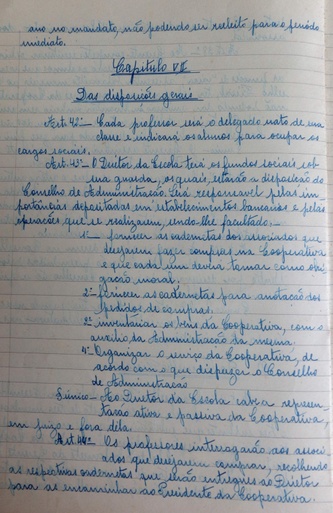 ano no mandato, não podendo ser reeleito para o periodo
imediato.
Capitulo VII
Das disposições gerais
Art. 42º— Cada professor será o delegado nato de sua
classe e indicará os alunos para ocupar os
cargos sociais.
Art. 43º— O Diretor da Escola terá os fundos sociais sob
sua guarda, os quais, estarão a disposição do
Conselho de Administração. Será responsavel pelas im-
portâncias depositadas em estabelecimentos bancarios e pelas
operações que se realizarem, sendo-lhe facultado:—
1º— fornecer as cadernetas dos associados que
desejarem fazer compras na Cooperativa
e que cada um devera tomar como obri
gação moral.
2º— fornecer as cadernetas para anotação dos
pedidos de compras.
3º— inventariar os bens da Cooperativa, com o
auxilio da Administração da mesma.
4º— Organizar o serviço da Cooperativa, de
acordo com o que dispozer o Conselho
de Administração
Único— Ao Diretor da Escola cabe a represen
tação ativa e passiva da Cooperativa,
em juizo e fora dele.
Art. 44º— Os professores interrogarão aos associ
ados que desejarem comprar, recolhendo
as respectivas cadernetas que serão entregues ao Diretor
para as encaminhar ao Presidente da Cooperativa.